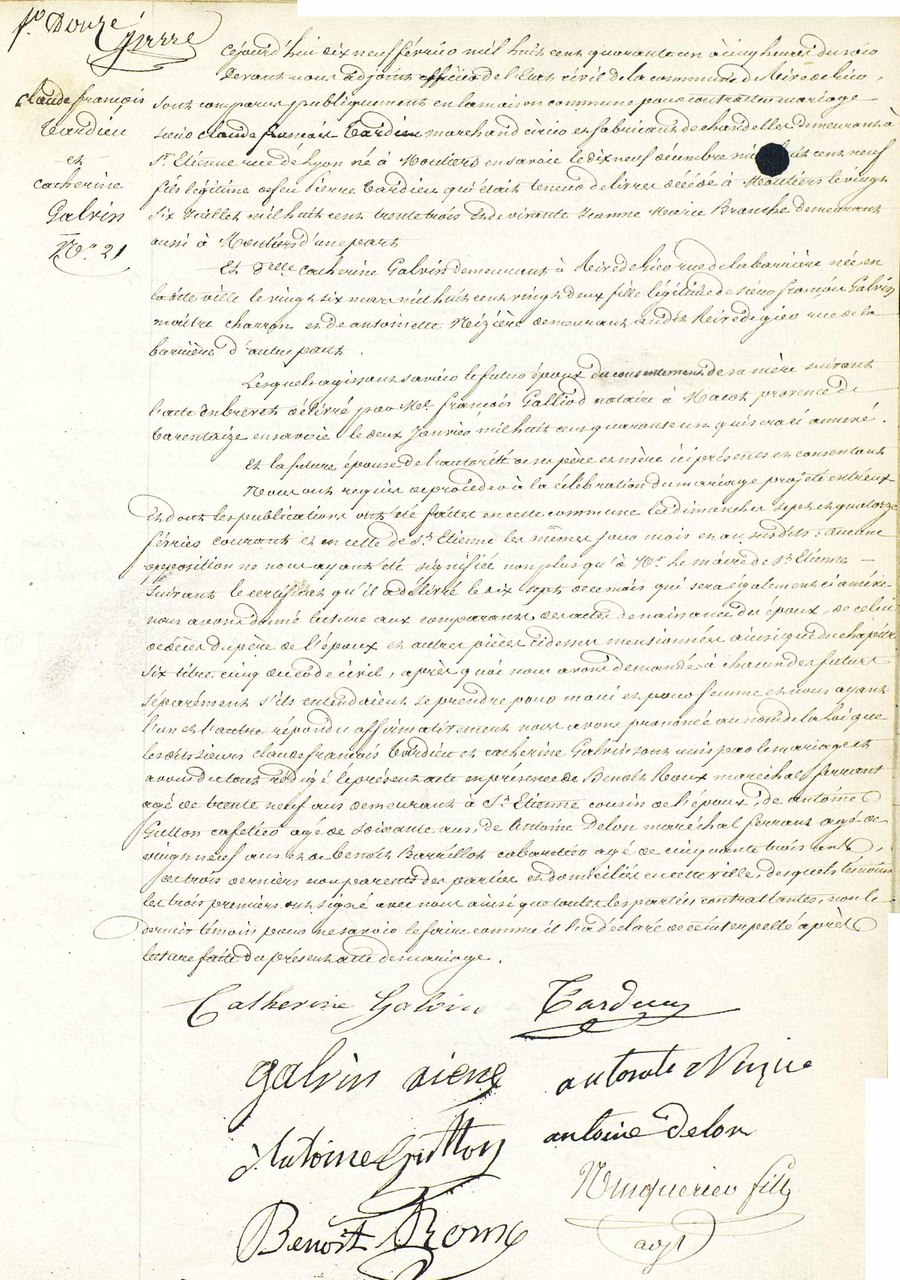 fo. Douze
Claude françois
Tardieu
et
Catherine
Galvin
No. 21
Cejourd'hui dix neuf février mil huit cent quarante un à cinq heures du soir
devant nous adjoint officier de l'Etat civil de la commune de Rive de Gier,
sont comparus publiquement en la maison commune pour contracter mariage
sieur Claude françois Tardieu marchand cirier et fabricant de chandelles demeurant à
St. Etienne rue de Lyon né à Moutiers en savoie le dix neuf décembre mil huit cent neuf
fils légitime de feu Pierre Tardieu qui était teneur de livres décédé à Moutiers le vingt
six Juillet mil huit cent trente trois et de vivante Jeanne Marie Branche demeurant
aussi à Moutiers d'une part
Et delle Catherine Galvin demeurant à Rive de Gier rue de la barrière née en
ladite ville le vingt six mars mil huit cent vingt deux fille légitime de sieur françois Galvin
maître charron et de antoinette Mizière demeurant audit Rive de gier rue de la
barrière d'autre part.
Lesquels agissant savoir le futur époux du consentement de sa mère suivant
l'acte en brevet délivré par Me. françois Galliod notaire à Macot province de
Tarentaize en savoie le deux Janvier mil huit cent quarante un qui sera ci annexé.
Et la future épouse de l'autorité de ses père et mère ici présents et consentant
Nous ont requis de procéder à la célébration du mariage projeté entr'eux
et dont les publications ont été faites en cette commune les dimanches sept et quatorze
février courant et en celle de St. Etienne les mêmes jours mois et an susdits: aucune
opposition ne nous ayant été signifiée non plus qu'à Mr. le maire de St. Etienne
suivant le certificat qu'il a délivré le dix sept de ce mois qui sera également ci annéxé
nous avons donné lecture aux comparants des actes de naissance des époux, de celui
de décès du père de l'époux et autres pièces cidessus mentionnées ainsi que du chapitre
six titre cinq du code civil, après quoi nous avons demandé à chacun des futurs
séparément s'ils entendaient se prendre pour mari et pour femme et nous ayant
l'un et l'autre répondu affirmativement nous avons prononcé au nom de la loi que
lesdits sieurs Claude françois Tardieu et Catherine Galvin sont unis par le mariage et
avons du tout rédigé le présent acte en présence de Benoît Roux maréchal ferrant
agé de trente neuf ans demeurant à St. Etienne cousin de l'époux; de antoine
Gutton cafetier agé de soixante ans, de Antoine Delon maréchal ferrant agé de
vingt neuf ans et de benoît Barrillot cabaretier agé de cinquante trois ans,
les trois derniers non parents des parties et domiciliés en cette ville, desquels témoins
les trois premiers ont signé avec nous ainsi que toutes les parties contractantes, non le
dernier témoin pour ne savoir le faire comme il l'a déclaré de ce interpellé après
lecture faite du présent acte de mariage.
Catherine Galvin Tardieu
galvin
Antoine Gutton antoine Delon
fils
Benoît adjt